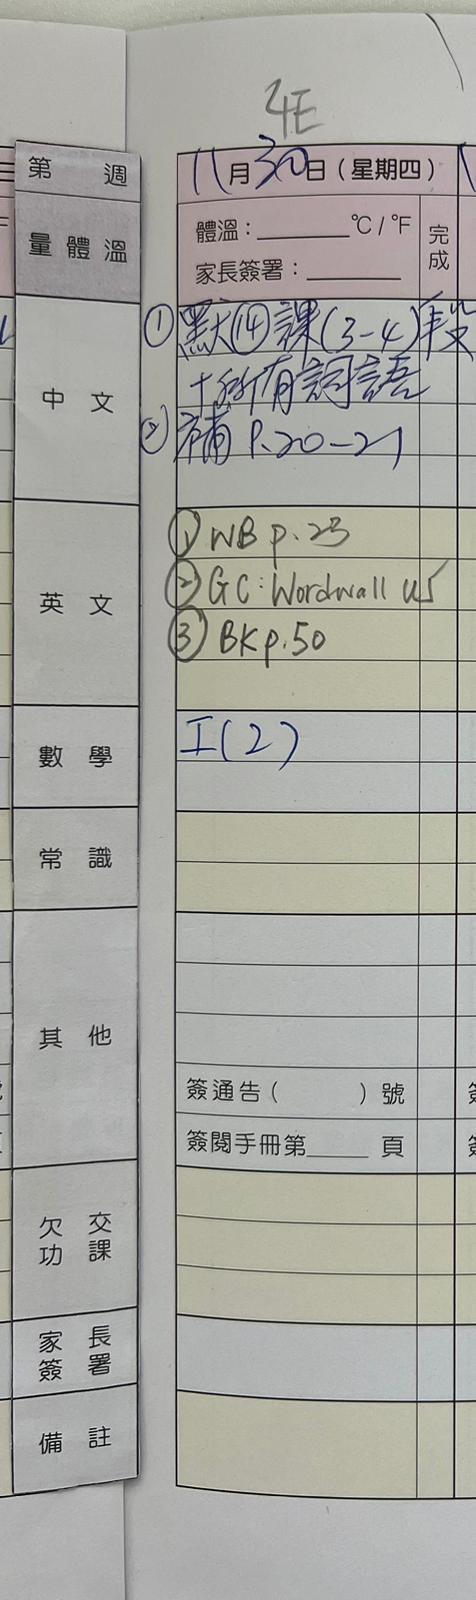 4E
第 週
11月30日（星期四）
量體溫
體溫：______℃/℉
完成
家長簽署：______
中文
①默⑭課(3-4)段
+所有詞語
②補 P.20-21
英文
① WB p.23
② GC: Wordwall U5
③ BK p.50
數學
I(2)
常識
其他
簽通告（ ）號
簽閱手冊第____頁
欠交
功課
家長
簽署
備註